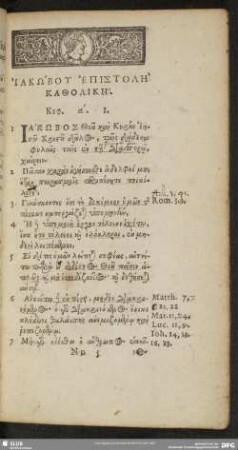 ἸΑΚΩΒΟΥ ἘΠΙΣΤΟΛΗ
ΚΑΘΟΛΙΚΗ.
Κεφ. α. I.
1 ἸΑΚΩΒΟΣ Θεοῦ καὶ Κυρίου Ἰη-
σοῦ Χριστοῦ δοῦλος, ταῖς δώδεκα
φυλαῖς ταῖς ἐν τῇ διασπορᾷ,
χαίρειν.
2 Πᾶσαν χαρὰν ἡγήσασθε ἀδελφοί μου,
ὅταν πειρασμοῖς περιπέσητε ποικί-
λοις.
3 Γινώσκοντες ὅτι τὸ δοκίμιον ὑμῶν τῆς
πίστεως κατεργάζεται ὑπομονήν.
Rom. 5.
4 Ἡ δὲ ὑπομονὴ ἔργον τέλειον ἐχέτω,
ἵνα ἦτε τέλειοι καὶ ὁλόκληροι, ἐν μη-
δενὶ λειπόμενοι.
5 Εἰ δέ τις ὑμῶν λείπεται σοφίας, αἰτεί-
τω
6 Αἰτείτω δὲ ἐν πίστει, μηδὲν διακρινό-
μενος· ὁ γὰρ διακρινόμενος ἔοικε
κλύδωνι θαλάσσης ἀνεμιζομένῳ καὶ
ῥιπιζομένῳ.
Matth. 7, 7
21, 22
Mar. 11, 24.
Luc. 11, 9.
Ioh. 14, 13.
16, 23.
7 Μὴ γὰρ οἰέσθω ὁ ἄνθρωπος ἐκεῖνος
SLUB